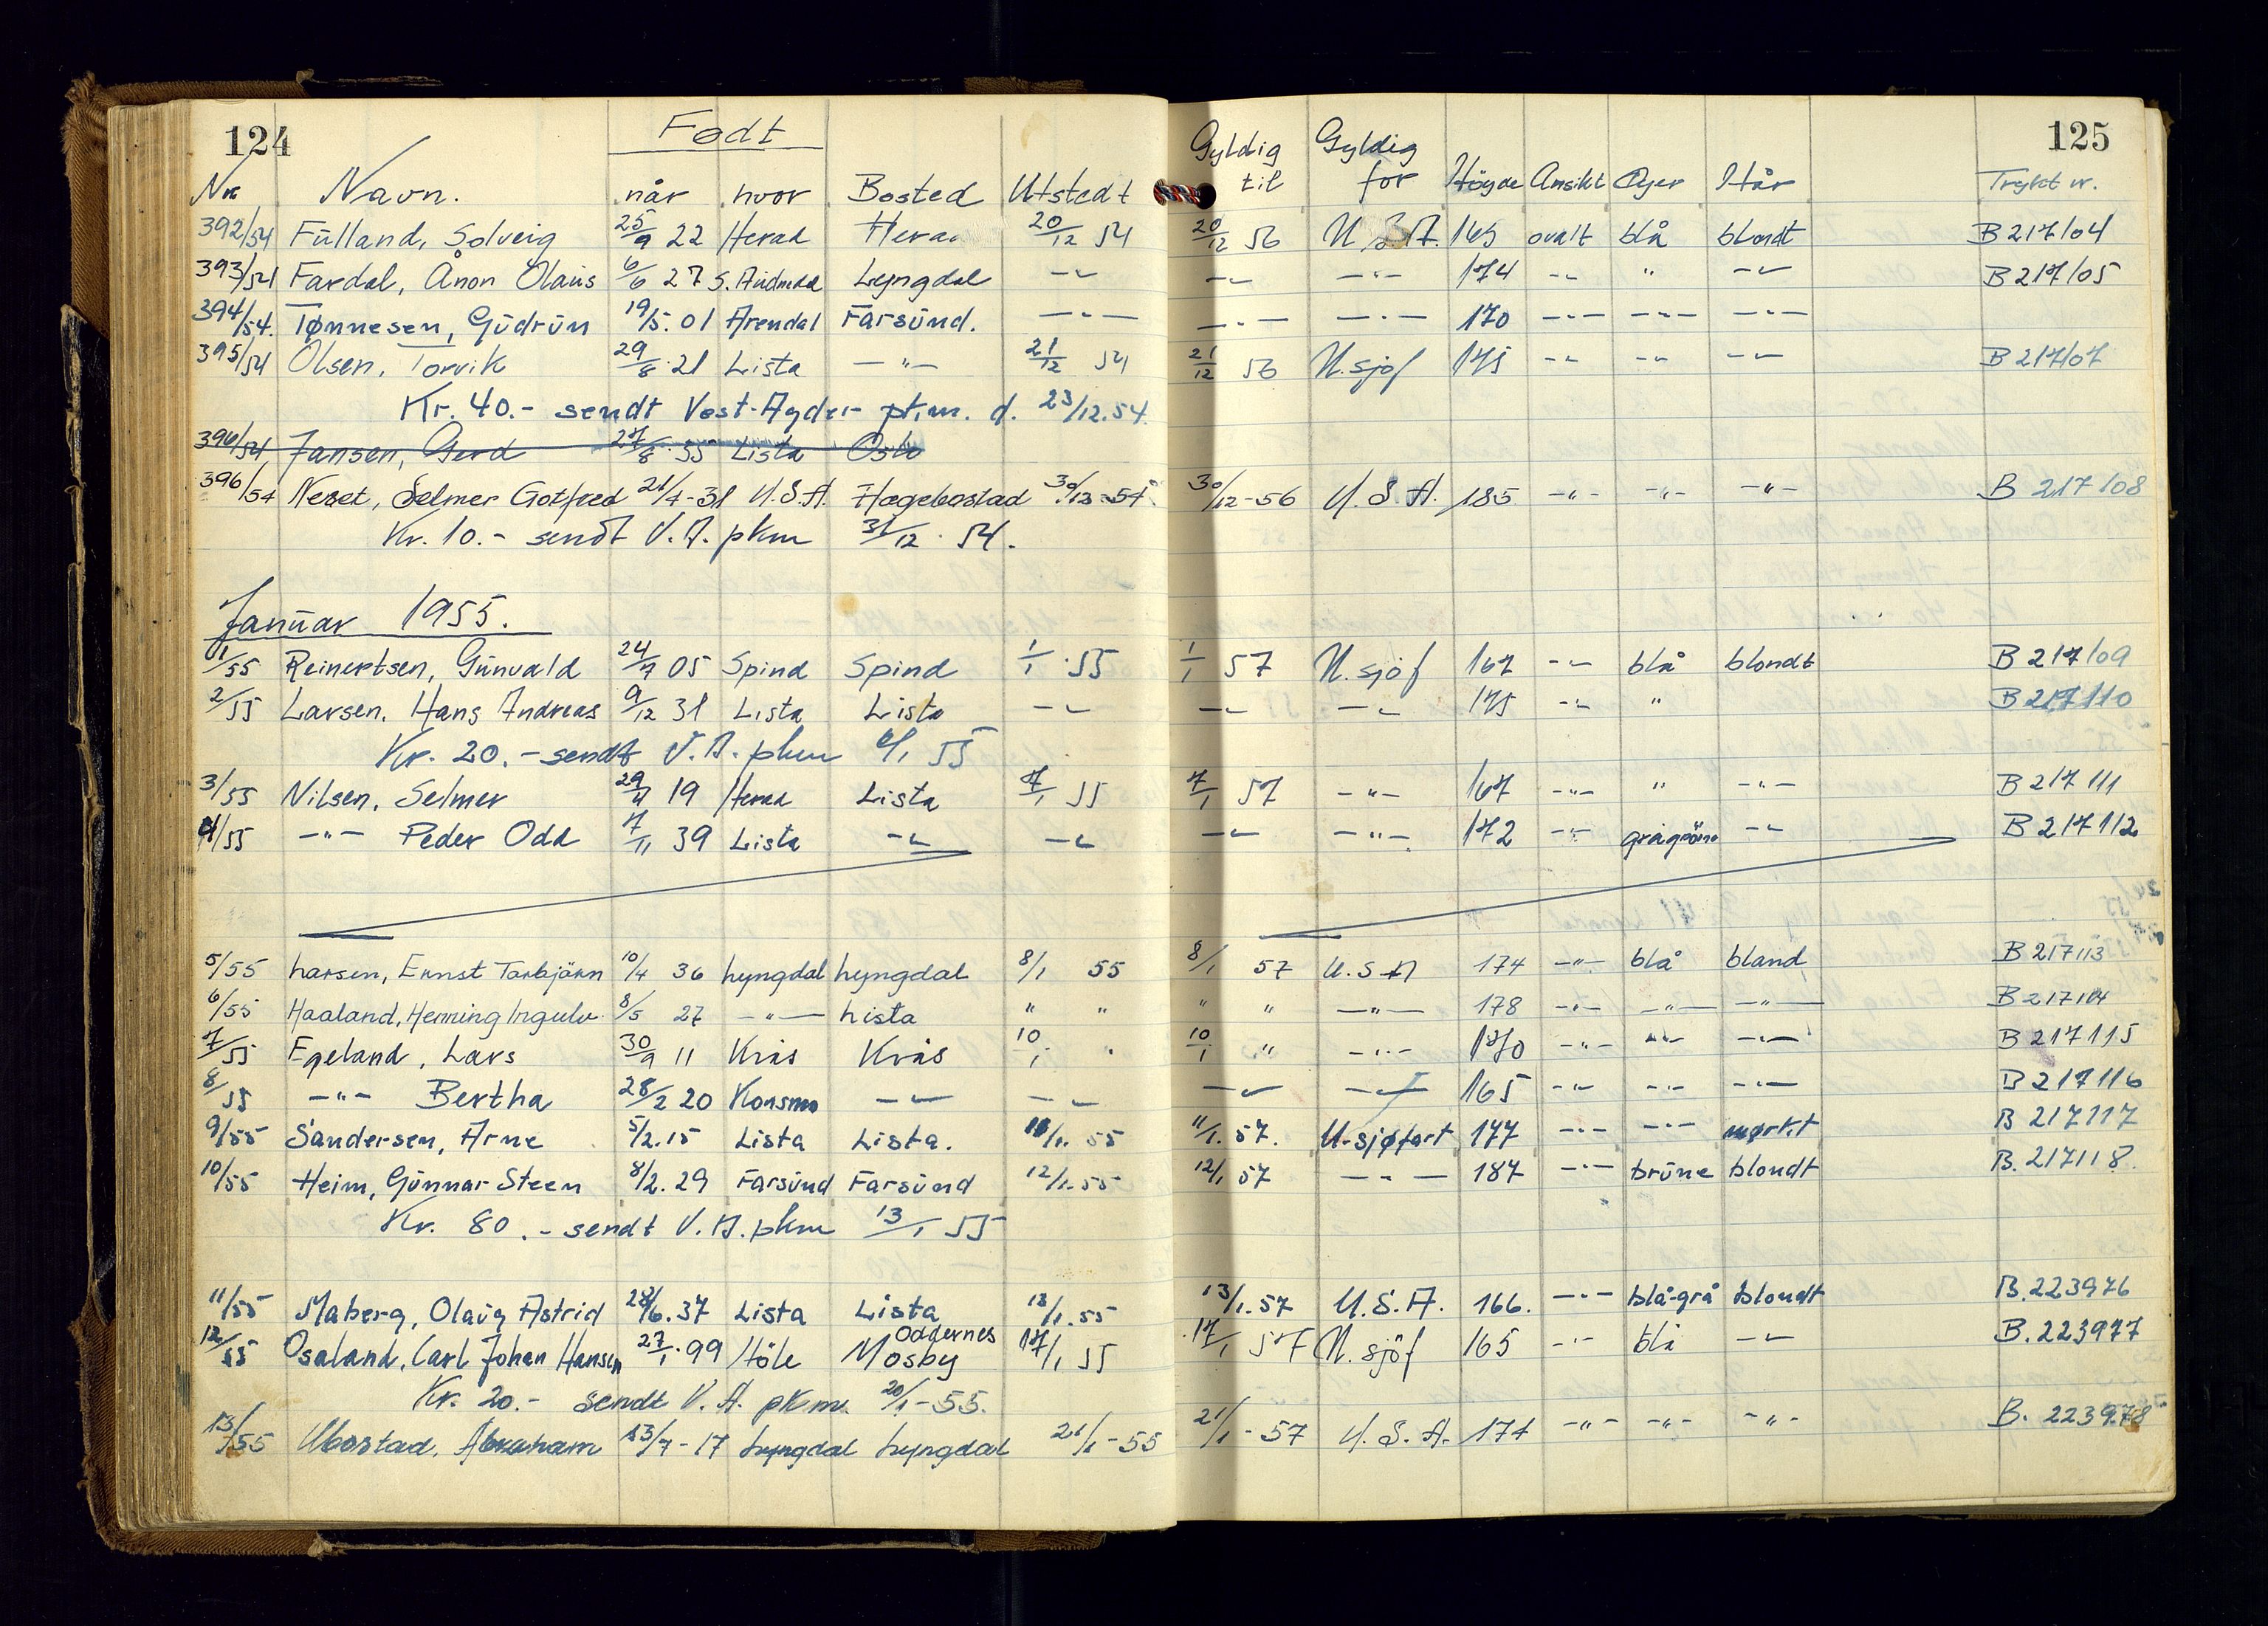 124 Født 125
Nr. Navn. når hvor Bosted Utstedt Gyldig til Gyldig for Høyde Ansikt Øyer Hår Trykt nr.
392/54 Fulland, Solveig 25/9 22 Herad Herad 20/12 54 20/12 56 U.S.A. 165 ovalt blå blondt B 217104
393/54 Fardal, Ånon Olaus 6/6 27 S. Audnedal Lyngdal -"- -"- -"- 174 -"- " -"- B 217105
394/54. Tønnesen, Gudrun 19/5. 01 Arendal Farsund. -"- -"- -"- 170 -"- -"- -"-
395/54 Olsen, Torvik 29/8 21 Lista -"- 21/12 54 21/12 56 U.sjøf 175 -"- -"- -"- B 217107
Kr. 40.- sendt Vest-Agder pkm. d. 23/12.54.
396/54 Jansen, Gerd 27/8 35 Lista Oslo
396/54 Neset, Selmer Gotfred 21/4-31 U.S.A. Hægebostad 30/12-54 30/12-56 U.S.A. 185 -"- -"- -"- B 217108
Kr. 10.- sendt V.A. pkm 31/12 54.
Januar 1955.
1/55 Reinertsen, Gunvald 24/7 05 Spind Spind 1/1 55 1/1 57 U.sjöf 167 -"- blå blondt B 217109
2/55 Larsen, Hans Andreas 9/12 31 Lista Lista -"- -"- -"- 175 -"- " B 217110
Kr. 20.- sendt V.A. pkm 6/1 55
3/55 Nilsen, Selmer 29/4 19 Herad Lista 7/1 55 7/1 57 -"- 167 -"- " -"- B 217111
4/55 -"- Peder Odd 7/11 39 Lista -"- -"- -"- -"- 172 -"- grågrønn -"- B 217112
5/55 Larsen, Ernst Torbjörn 10/4 36 Lyngdal Lyngdal 8/1 55 8/1 57 U.S.A 174 -"- blå bland B 217113
6/55 Haaland, Henning Ingulv 8/5 27 -"- Lista " " " " -"- 178 -"- -"- -"- B 217114
7/55 Egeland, Lars 30/9 11 Kvås Kvås 10/1 " 10/1 " -"- 170 -"- -"- -"- B 217115
8/55 -"- Bertha 28/2 20 Konsmo -"- -"- -"- -"- 165 -"- -"- -"- B 217116
9/55 Sandersen, Arne 5/2.15 Lista Lista. 11/1. 55 11/1. 57. U.sjøfart 177 -"- -"- mørkt B 217117
10/55 Heim, Gunnar Steen 8/2. 29 Farsund Farsund 12/1. 55 12/1 57 -"- 187 -"- brune blondt B. 217118.
Kr. 80.- sendt V.A. pkm 13/1 55
11/55 Maberg, Olaug Astrid 28/6. 37 Lista Lista 13/1. 55 13/1. 57 U.S.A. 166. -"- blå-grå blondt B. 223976
Oddernes
12/55 Osaland, Carl Johan Hansen 27/1. 99 Höle Mosby 17/1 55 17/1 57 U.sjöf 165 -"- blå -"- B. 223977
Kr. 20.- sendt V.A. pkm. 20/1-55.
13/55 Ubostad, Abraham 13/7-17 Lyngdal Lyngdal 21/1-55 21/1-57 U.S.A. 174 -"- -"- -"- B. 223978